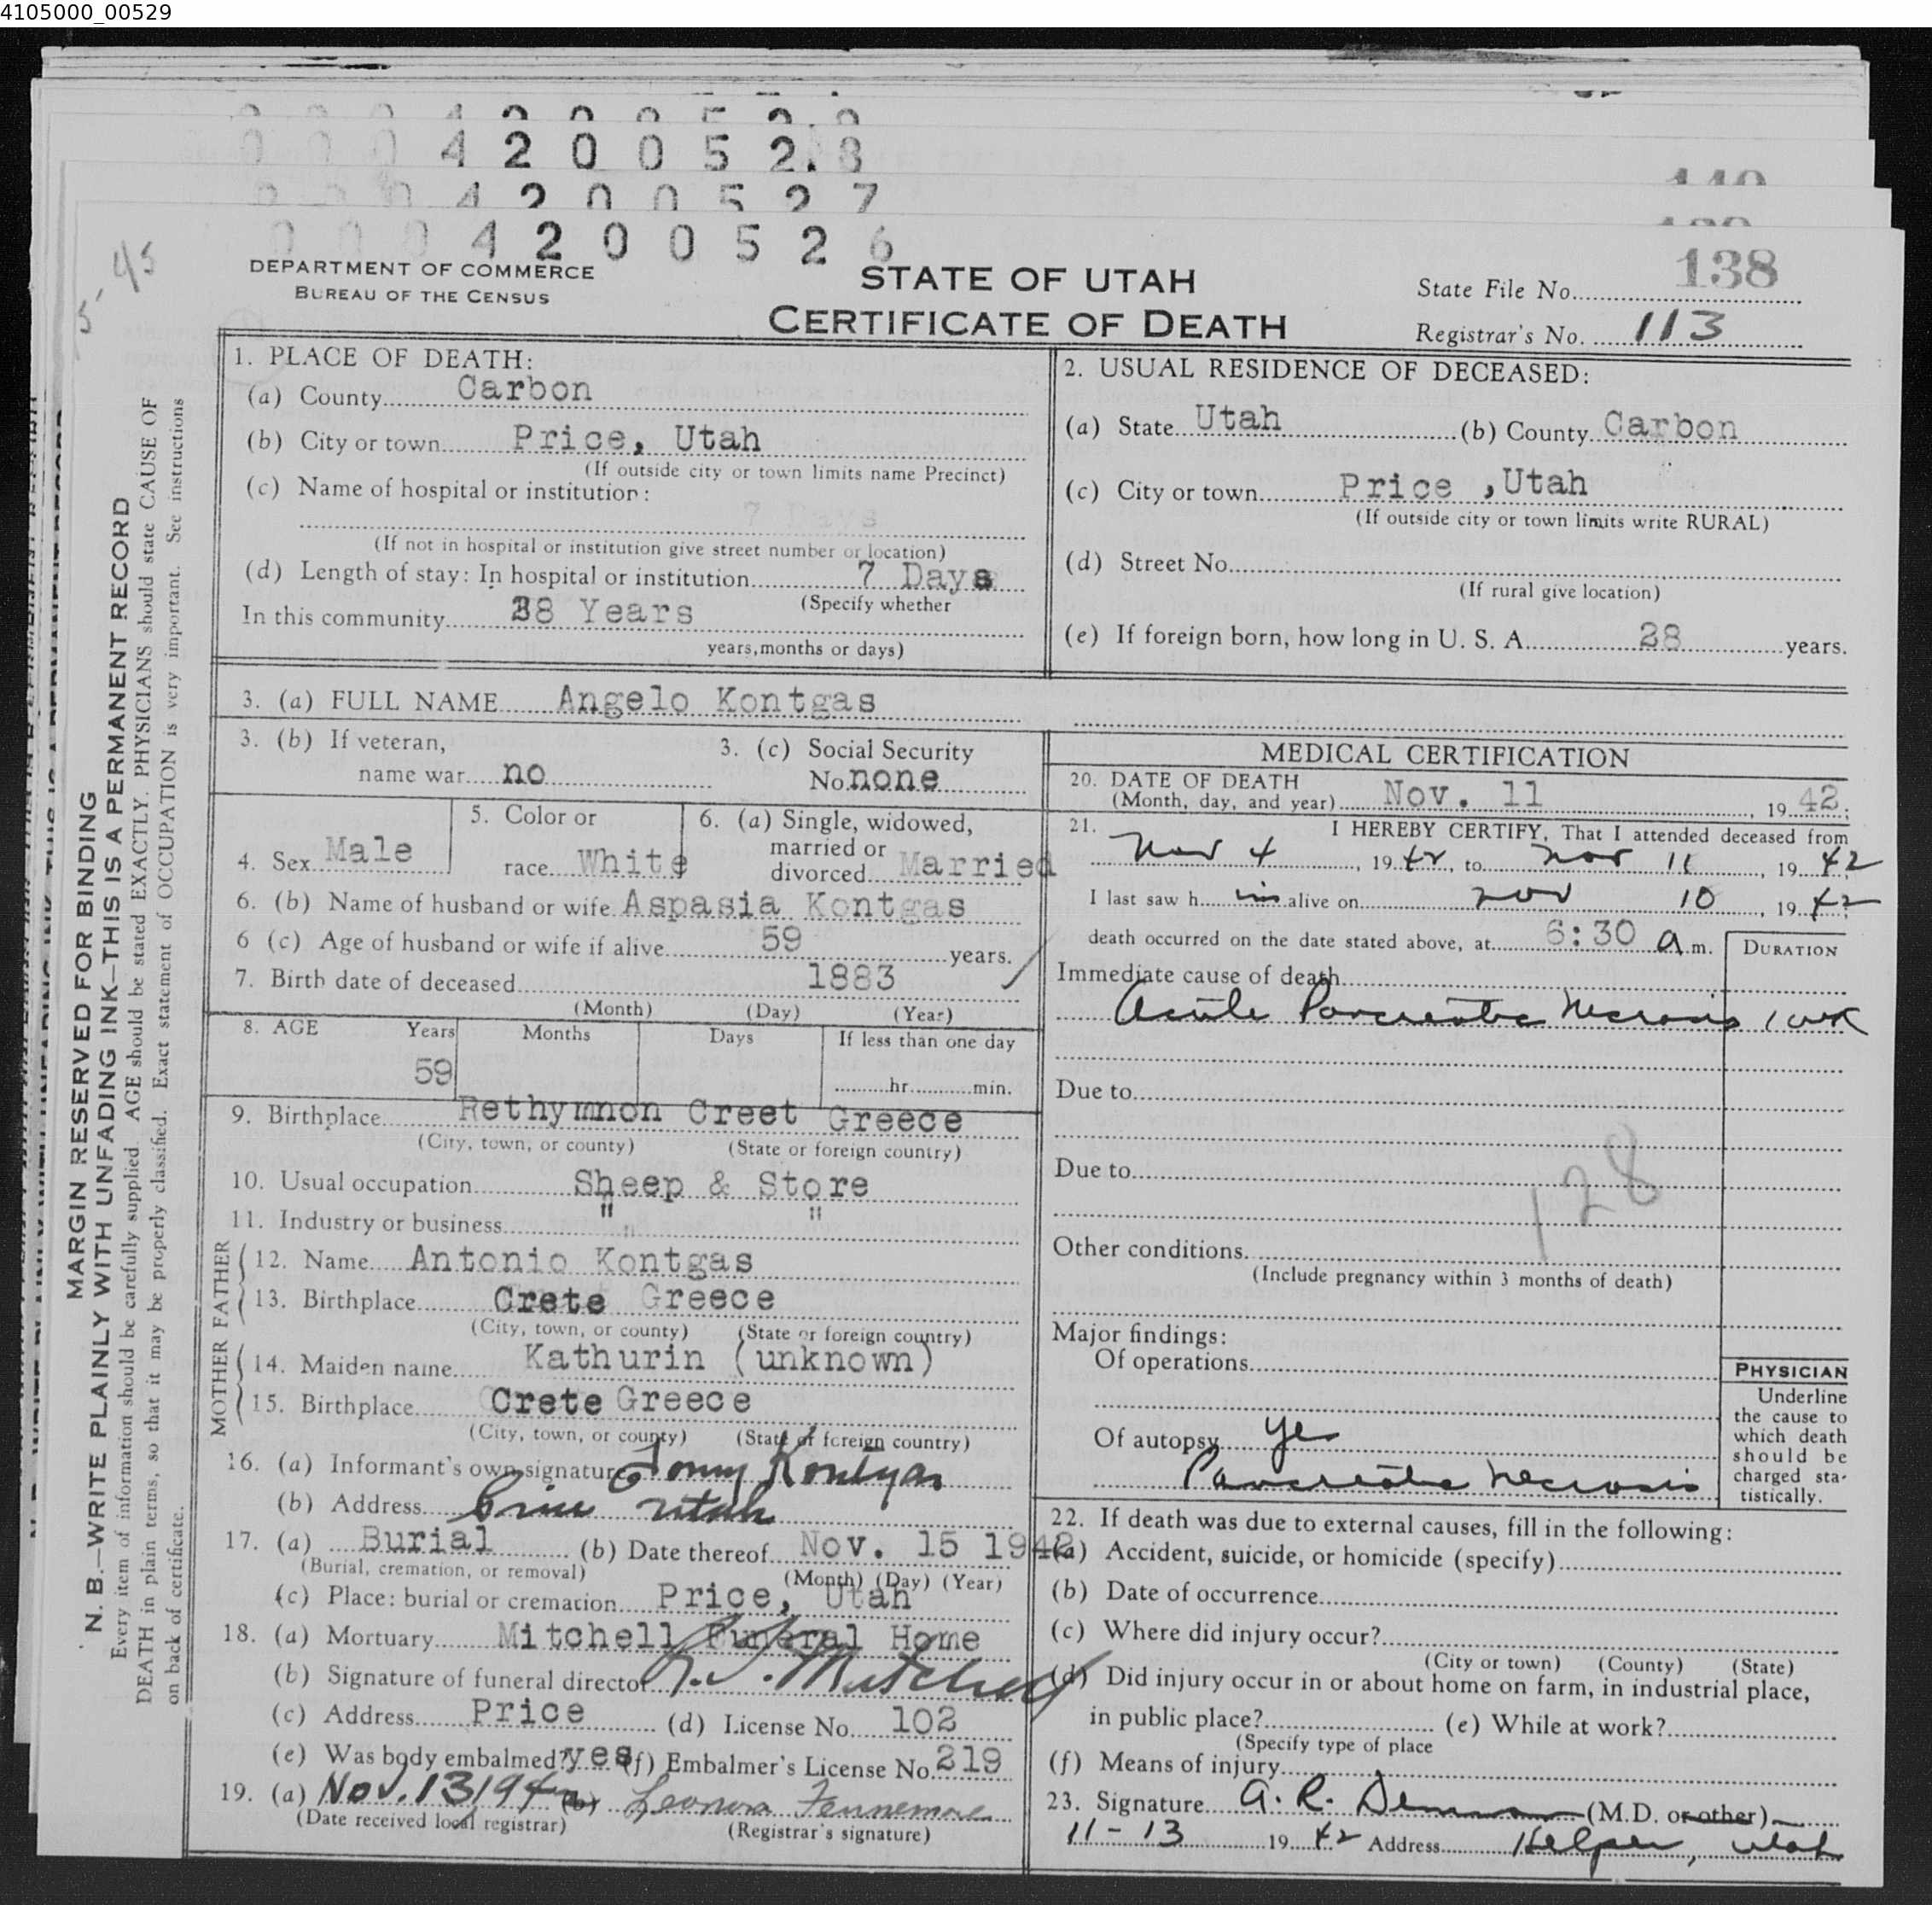 4105000_00529
0 0 0 4 2 0 0 5 2 8
0 0 0 4 2 0 0 5 2 7
0 0 0 4 2 0 0 5 2 6
5-45
DEPARTMENT OF COMMERCE
BUREAU OF THE CENSUS
STATE OF UTAH
CERTIFICATE OF DEATH
State File No. 138
Registrar's No. 113
MARGIN RESERVED FOR BINDING
N. B.—WRITE PLAINLY WITH UNFADING INK—THIS IS A PERMANENT RECORD
Every item of information should be carefully supplied. AGE should be stated EXACTLY. PHYSICIANS should state CAUSE OF
DEATH in plain terms, so that it may be properly classified. Exact statement of OCCUPATION is very important. See instructions
on back of certificate.
1. PLACE OF DEATH:
(a) County Carbon
(b) City or town Price, Utah
(If outside city or town limits name Precinct)
(c) Name of hospital or institution:
7 Days
(If not in hospital or institution give street number or location)
(d) Length of stay: In hospital or institution 7 Days
(Specify whether
In this community 28 Years
years, months or days)
2. USUAL RESIDENCE OF DECEASED:
(a) State Utah (b) County Carbon
(c) City or town Price ,Utah
(If outside city or town limits write RURAL)
(d) Street No.
(If rural give location)
(e) If foreign born, how long in U. S. A. 28 years.
3. (a) FULL NAME Angelo Kontgas
3. (b) If veteran,
name war no
3. (c) Social Security
No. none
4. Sex Male
5. Color or
race White
6. (a) Single, widowed,
married or
divorced Married
6. (b) Name of husband or wife Aspasia Kontgas
6 (c) Age of husband or wife if alive 59 years.
7. Birth date of deceased 1883
(Month) (Day) (Year)
8. AGE Years Months Days If less than one day
59 hr. min.
9. Birthplace Rethymnon Creet Greece
(City, town, or county) (State or foreign country)
10. Usual occupation Sheep & Store
11. Industry or business " "
FATHER
12. Name Antonio Kontgas
13. Birthplace Crete Greece
(City, town, or county) (State or foreign country)
MOTHER
14. Maiden name Kathurin (unknown)
15. Birthplace Crete Greece
(City, town, or county) (State of foreign country)
16. (a) Informant's own signature Tony Kontgas
(b) Address Price Utah
17. (a) Burial (b) Date thereof Nov. 15 1942
(Burial, cremation, or removal) (Month) (Day) (Year)
(c) Place: burial or cremation Price, Utah
18. (a) Mortuary Mitchell Funeral Home
(b) Signature of funeral director Mitchell
(c) Address Price (d) License No. 102
(e) Was body embalmed? yes (f) Embalmer's License No. 219
19. (a) Nov. 13 1942 (b) Leonora Fennemore
(Date received local registrar) (Registrar's signature)
MEDICAL CERTIFICATION
20. DATE OF DEATH
(Month, day, and year) Nov. 11, 1942.
21. I HEREBY CERTIFY, That I attended deceased from
Nov 4, 1942, to Nov 11, 1942
I last saw him alive on Nov 10, 1942
death occurred on the date stated above, at 6:30 a.m.
DURATION
Immediate cause of death
Acute Pancreatic Necrosis 1 wk
Due to
Due to
128
Other conditions.
(Include pregnancy within 3 months of death)
Major findings:
Of operations
Of autopsy yes
Pancreatic Necrosis
PHYSICIAN
Underline
the cause to
which death
should be
charged sta-
tistically.
22. If death was due to external causes, fill in the following:
(a) Accident, suicide, or homicide (specify)
(b) Date of occurrence
(c) Where did injury occur?
(City or town) (County) (State)
(d) Did injury occur in or about home on farm, in industrial place,
in public place? (e) While at work?
(Specify type of place
(f) Means of injury
23. Signature A. R. Demman (M.D. or other)
11-13 1942 Address Helper, Utah